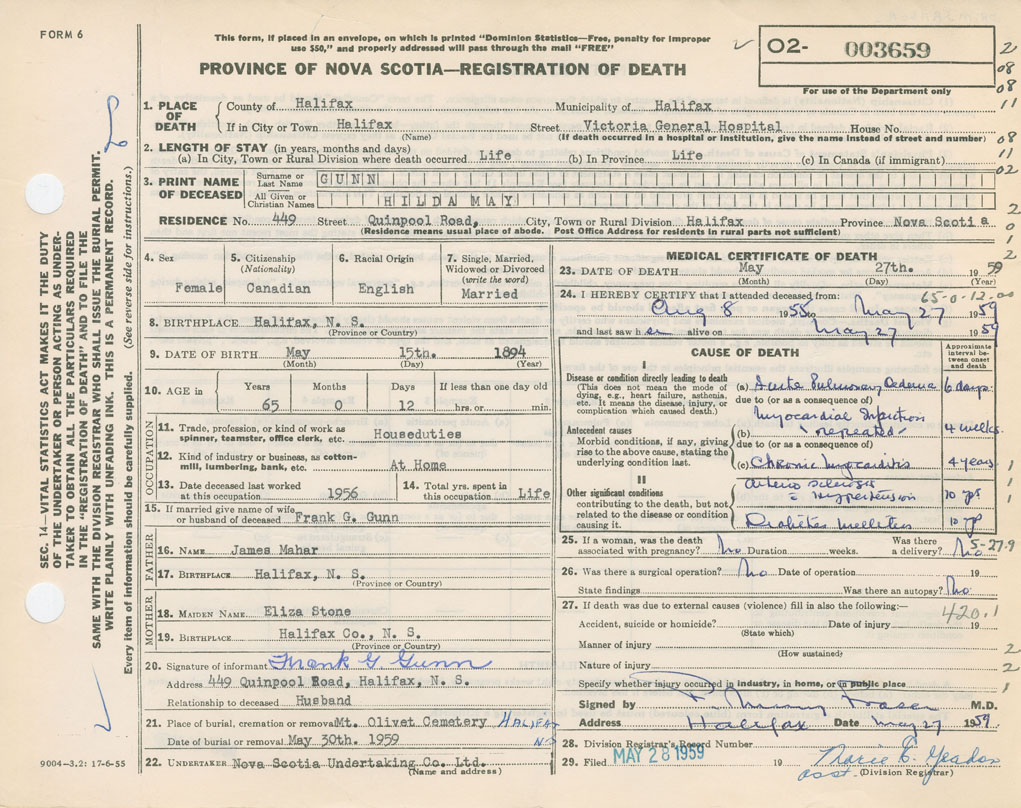 FORM 6
This form, if placed in an envelope, on which is printed "Dominion Statistics—Free, penalty for improper
use $50," and properly addressed will pass through the mail "FREE"
PROVINCE OF NOVA SCOTIA—REGISTRATION OF DEATH
02- 003659
For use of the Department only
SEC. 14—VITAL STATISTICS ACT MAKES IT THE DUTY
OF THE UNDERTAKER OR PERSON ACTING AS UNDER-
TAKER TO OBTAIN ALL THE PARTICULARS REQUIRED
IN THE "REGISTRATION OF DEATH" AND TO FILE THE
SAME WITH THE DIVISION REGISTRAR WHO SHALL ISSUE THE BURIAL PERMIT.
WRITE PLAINLY WITH UNFADING INK. THIS IS A PERMANENT RECORD.
Every item of information should be carefully supplied. (See reverse side for instructions.)
1. PLACE OF DEATH
County of Halifax Municipality of Halifax
If in City or Town Halifax Street Victoria General Hospital House No.
(Name) (If death occurred in a hospital or institution, give the name instead of street and number)
2. LENGTH OF STAY (in years, months and days)
(a) In City, Town or Rural Division where death occurred Life (b) In Province Life (c) In Canada (if immigrant)
3. PRINT NAME OF DECEASED
Surname or Last Name GUNN
All Given or Christian Names HILDA MAY
RESIDENCE No. 449 Street Quinpool Road, City, Town or Rural Division Halifax Province Nova Scotia
(Residence means usual place of abode. Post Office Address for residents in rural parts not sufficient)
4. Sex
Female
5. Citizenship
(Nationality)
Canadian
6. Racial Origin
English
7. Single, Married,
Widowed or Divorced
(write the word)
Married
8. BIRTHPLACE Halifax, N. S.
(Province or Country)
9. DATE OF BIRTH May 15th. 1894
(Month) (Day) (Year)
10. AGE in Years Months Days If less than one day old
65 0 12 hrs. or min.
OCCUPATION
11. Trade, profession, or kind of work as
spinner, teamster, office clerk, etc. Houseduties
12. Kind of industry or business, as cotton-
mill, lumbering, bank, etc. At Home
13. Date deceased last worked
at this occupation 1956
14. Total yrs. spent in
this occupation Life
15. If married give name of wife
or husband of deceased Frank G. Gunn
FATHER
16. NAME James Mahar
17. BIRTHPLACE Halifax, N. S.
(Province or Country)
MOTHER
18. MAIDEN NAME Eliza Stone
19. BIRTHPLACE Halifax Co., N. S.
(Province or Country)
20. Signature of informant Frank G. Gunn
Address 449 Quinpool Road, Halifax, N. S.
Relationship to deceased Husband
21. Place of burial, cremation or removal Mt. Olivet Cemetery HALIFAX
Date of burial or removal May 30th. 1959 NS
22. UNDERTAKER Nova Scotia Undertaking Co. Ltd.
(Name and address)
9004-3.2: 17-6-55
MEDICAL CERTIFICATE OF DEATH
23. DATE OF DEATH May 27th. 1959
(Month) (Day) (Year)
65-0-12-00
24. I HEREBY CERTIFY that I attended deceased from:
Aug 8 1958 to May 27 1959
and last saw her alive on May 27 1959
CAUSE OF DEATH
Approximate
interval be-
tween onset
and death
I
Disease or condition directly leading to death
(This does not mean the mode of
dying, e.g., heart failure, asthenia,
etc. It means the disease, injury, or
complication which caused death.)
(a) Acute Pulmonary Oedema 6 days
due to (or as a consequence of)
Antecedent causes
Morbid conditions, if any, giving
rise to the above cause, stating the
underlying condition last.
Myocardial Infarction
(b) - repeated - 4 weeks.
due to (or as a consequence of)
(c) Chronic Myocarditis 4 years
II
Other significant conditions
contributing to the death, but not
related to the disease or condition
causing it.
Arterio sclerosis
Hypertension 10 yrs
Diabetes Mellitus 10 yrs
25. If a woman, was the death
associated with pregnancy? No Duration weeks. Was there
a delivery? No
5-27.9
26. Was there a surgical operation? No Date of operation 19
State findings Was there an autopsy? No
27. If death was due to external causes (violence) fill in also the following:—
420.1
Accident, suicide or homicide? Date of injury 19
(State which)
Manner of injury
(How sustained)
Nature of injury
Specify whether injury occurred in industry, in home, or in public place
Signed by Murray Fraser M.D.
Address Halifax Date May 27 1959
28. Division Registrar's Record Number
29. Filed MAY 28 1959 19
asst. (Division Registrar)
2
08
08
11
08
11
02
2
0
1
2
1
1
1
2
2
1